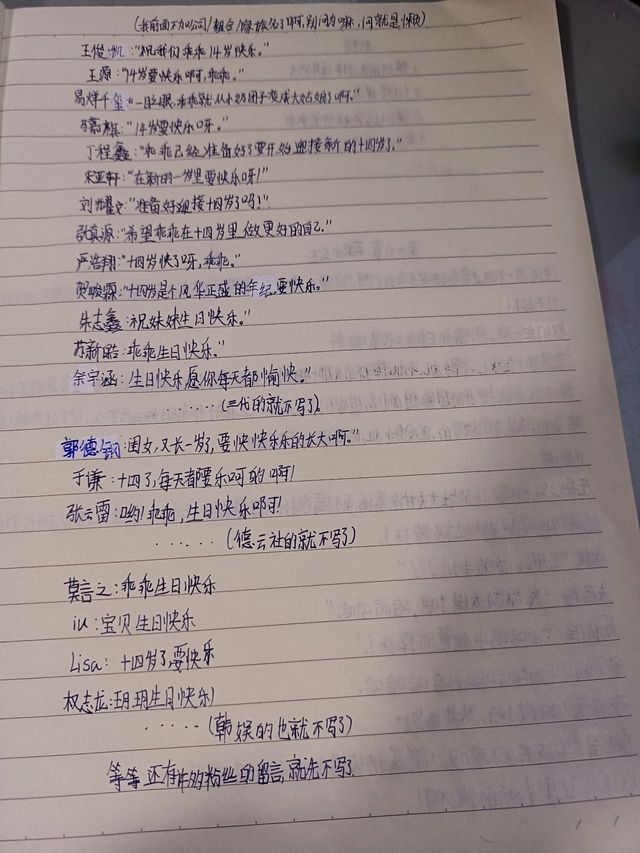 (我前面不加公司/组合/家族名了啊,别问为嘛,问就是懒)
王俊凯:"祝我们乖乖14岁快乐。"
王源:"14岁要快乐啊,乖乖。"
易烊千玺:"一眨眼,乖乖就从小奶团子变成大姑娘了啊。"
马嘉祺:"14岁要快乐呀。"
丁程鑫:"乖乖已经准备好了要开始迎接新的十四岁了。"
宋亚轩:"在新的一岁里要快乐呀!"
刘耀文:"准备好迎接十四岁了吗!"
张真源:"希望乖乖在十四岁里做更好的自己。"
严浩翔:"十四岁快了呀,乖乖。"
贺峻霖:"十四岁是个风华正盛的年纪,要快乐。"
朱志鑫:祝妹妹生日快乐。"
苏新皓:乖乖生日快乐。"
余宇涵:生日快乐愿你每天都愉快。"
······(三代的就不写了)
郭德纲:闺女,又长一岁了,要快快乐乐的长大啊。"
于谦:十四了,每天都要乐呵的啊!
张云雷:哟!乖乖,生日快乐即可!
·····(德云社的就不写了)
莫言之:乖乖生日快乐
iu:宝贝生日快乐
Lisa:十四岁了要快乐
权志龙:玥玥生日快乐!
·····(韩娱的也就不写了)
等等还有许多粉丝的留言,就先不写了.